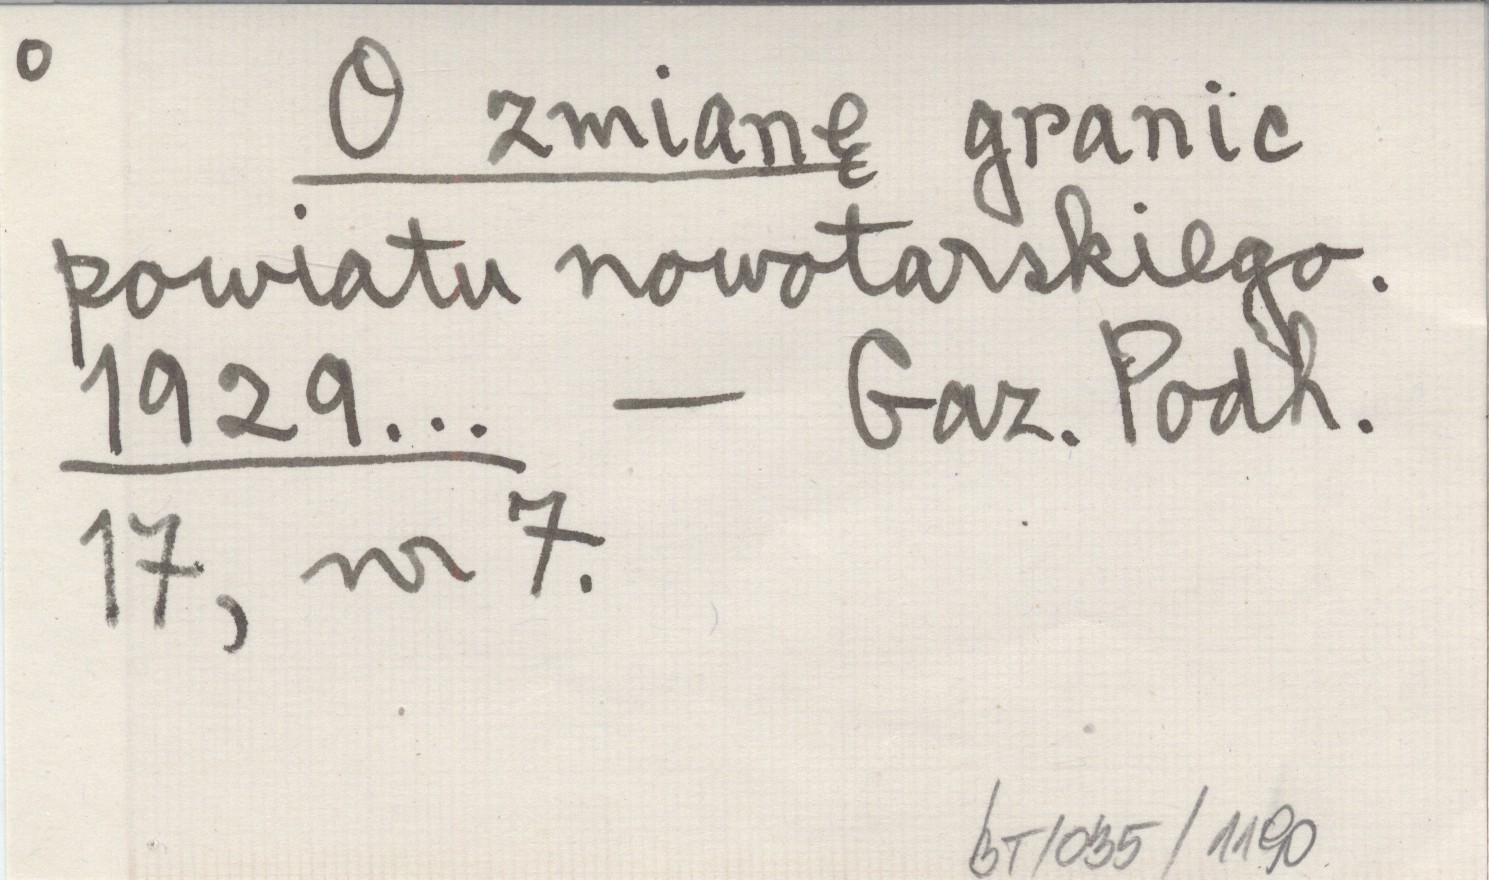 o
O zmianę granic
powiatu nowotarskiego.
1929... — Gaz. Podh.
17, nr 7.
BT/035/1190